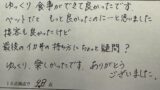 ゆっくり食事ができて良かったです
ベッドだともっと良かったのにーと思いました
接客も良かったけど
最後のイカ刺の持ち方にちょっと疑問？
ゆっくり、楽しかったです。ありがとう
ございました。